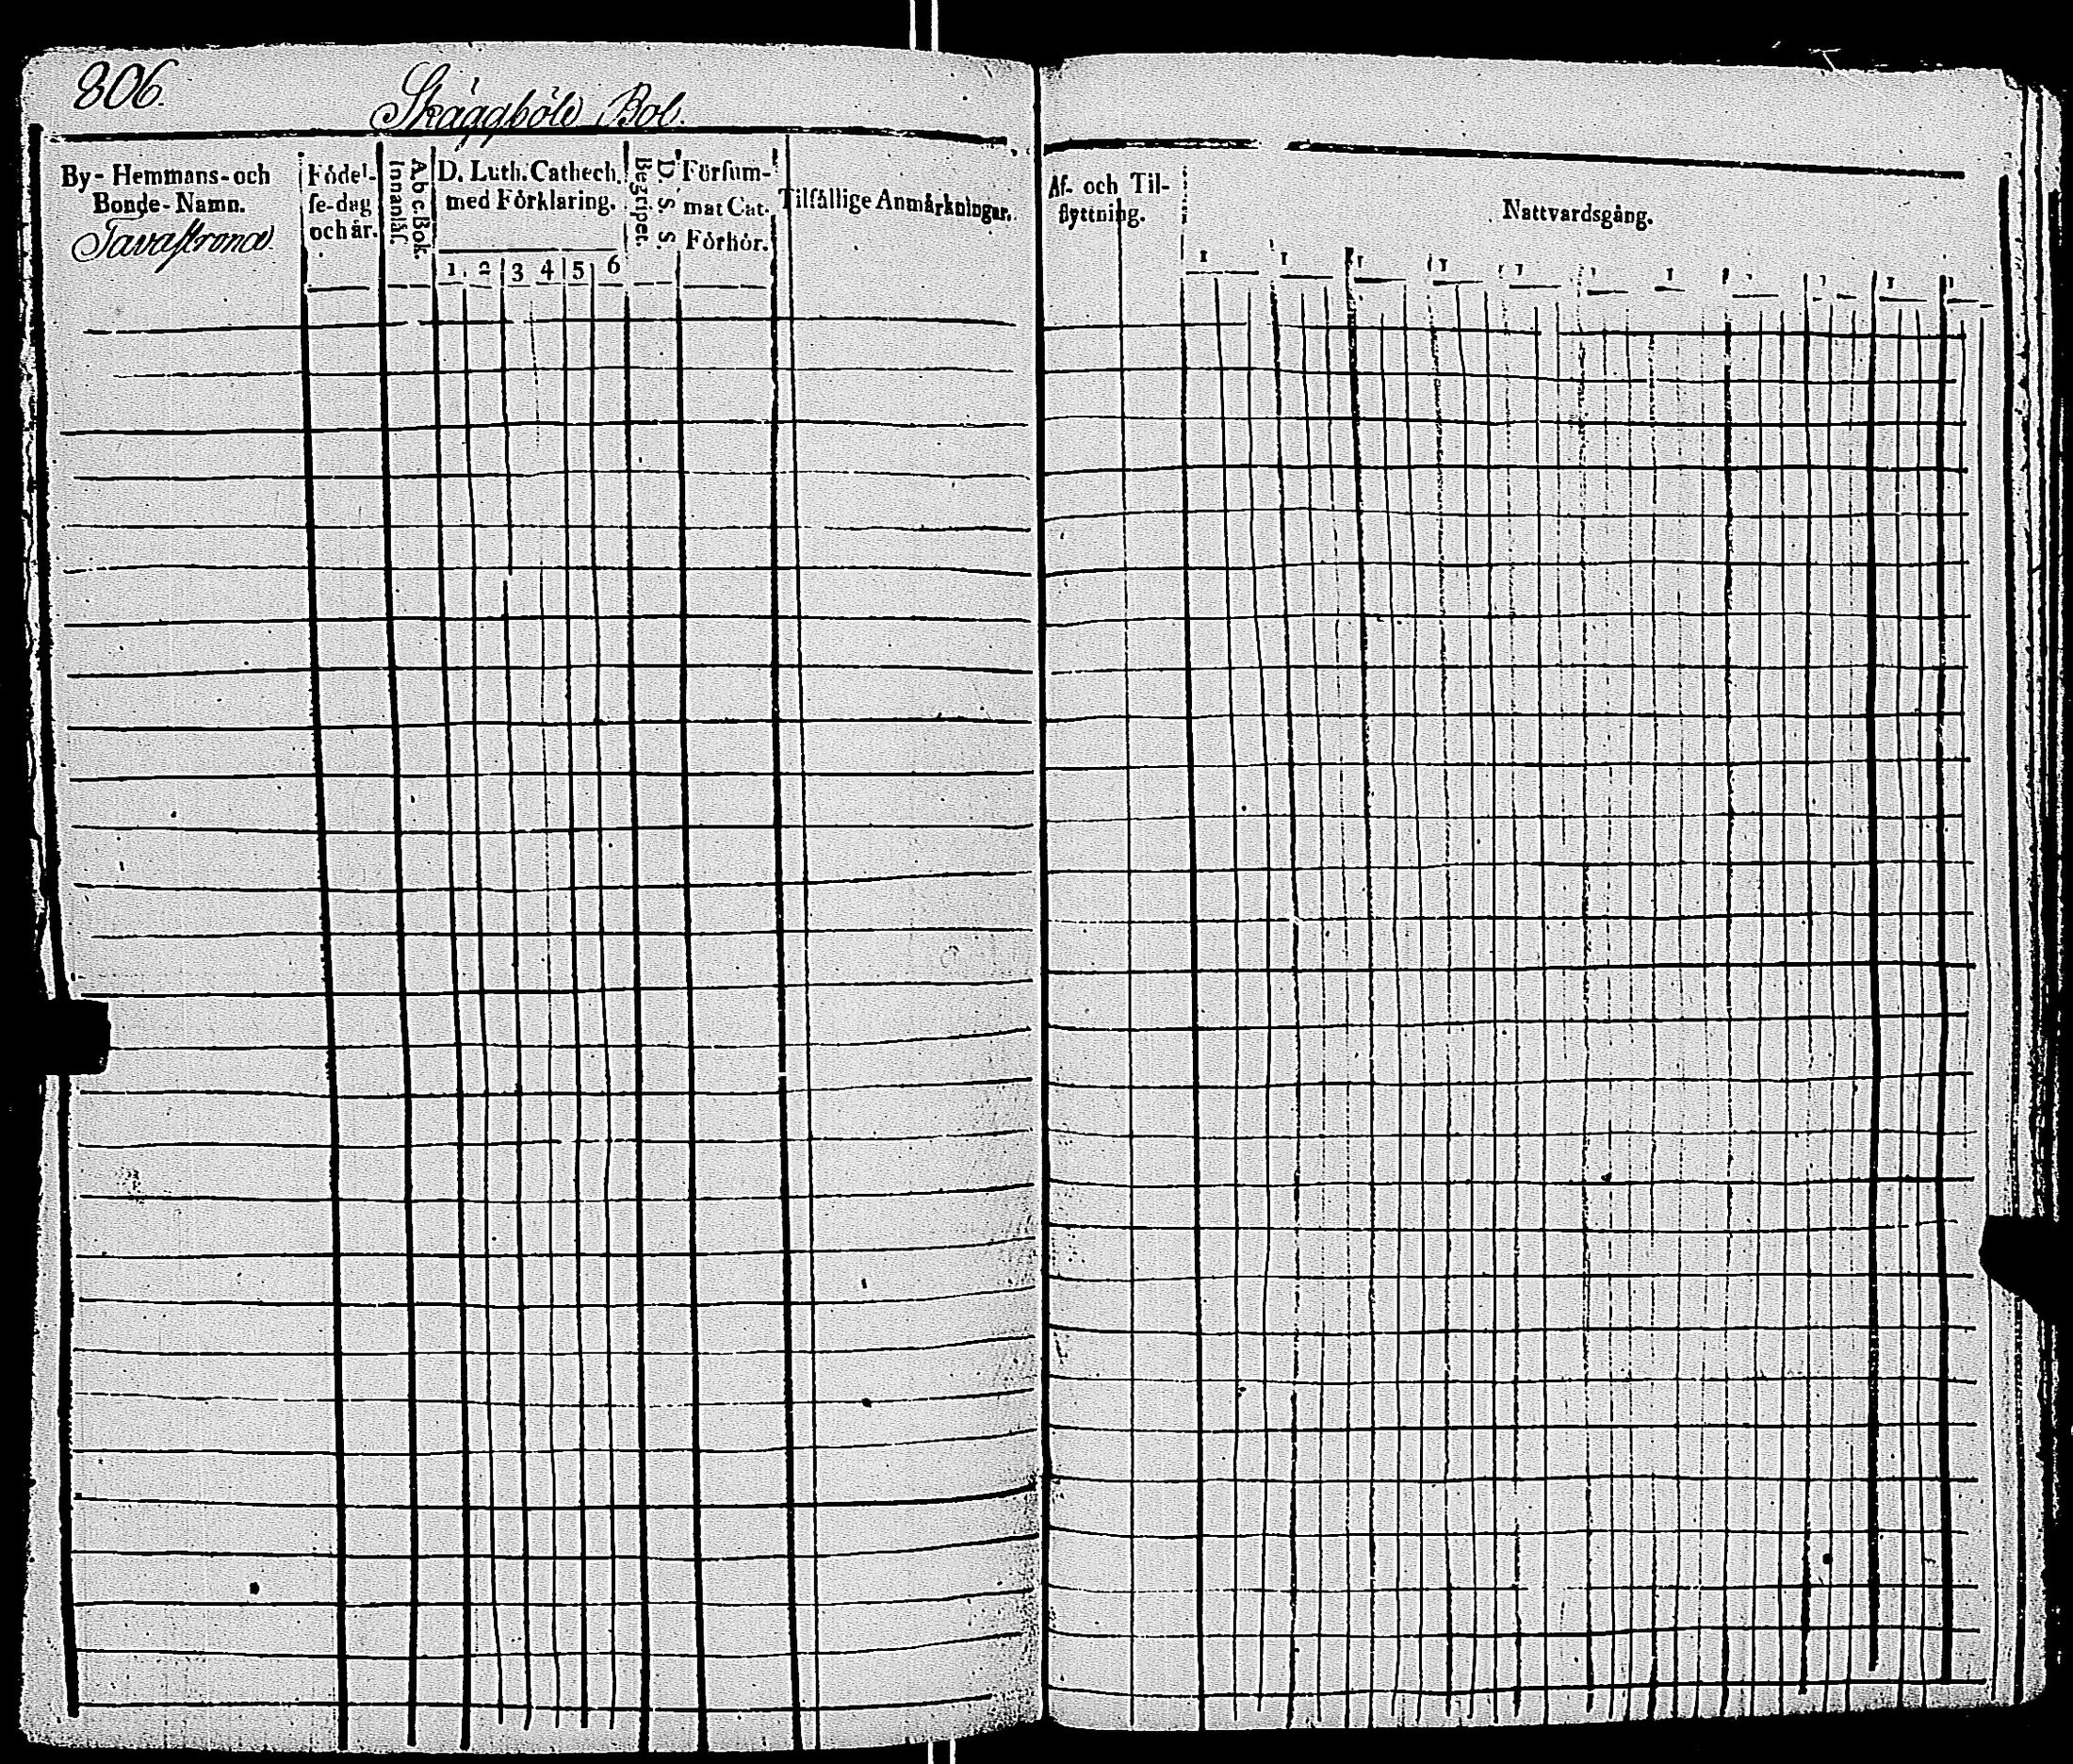 806.
Skäggböle Bol.
By- Hemmans- och
Bonde- Namn.
Tavastrona
Födel-
se-dag
och år.
A b c. Bok.
Innanläs.
D. Luth. Cathech.
med Förklaring.
1. 2 3 4 5 6
Begripet.
D. S. S.
Försum-
mat Cat.
Förhör.
Tilfällige Anmärkningar.
Af- och Til-
flyttning.
Nattvardsgång.